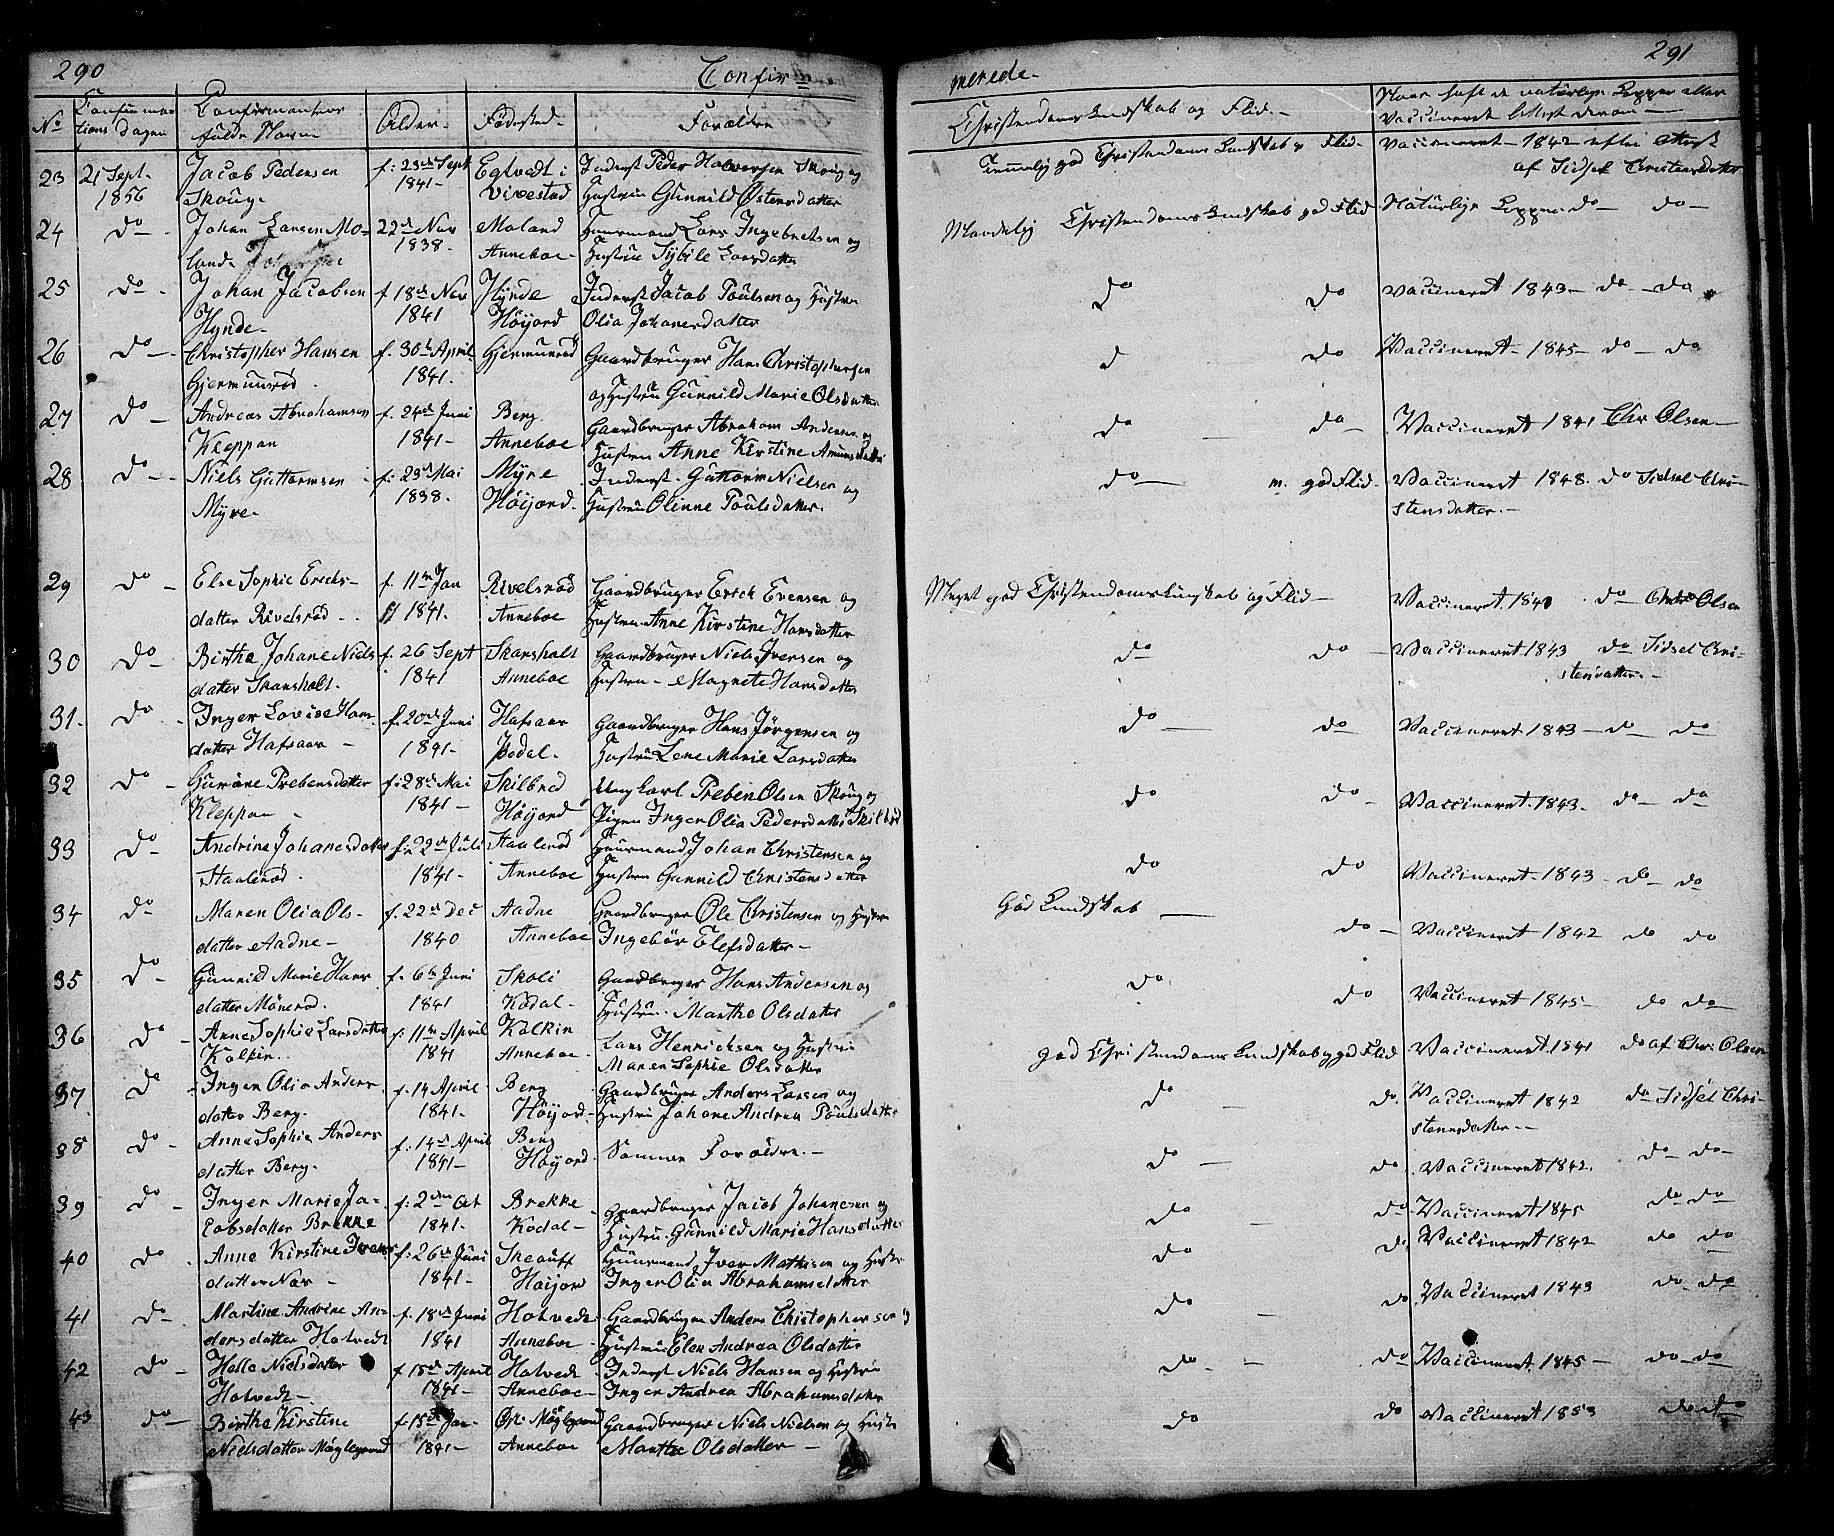 290
Confir
merede.
291
No
Confirma-
tions Dagen
Confirmantens
fulde Navn
Alder.
Fødested.
Forældre
Christendomskundskab og Flid.
Vaccineret
23
21 Sept.
1856
Jacob Pedersen
Skoug.
f. 23de Sept
1841.
Vivestad
Inderst Peder Halvorsen Skoug og
Hustrue Gunnild Østensdatter
Temmelig god Christendoms Kundskab og Flid.
Vaccineret 1842 efter Attest
af Sidsel Christensdatter
24
do
Johan Larsen Mo-
land.
22de Nov
1838.
Moland
Anneboe
Huusmand Lars Ingebretsen og
Hustrue Sybile Larsdatter
Maadelig Christendoms Kundskab god Flid
Natürlige Kopper do do
25
do
Johan Jacobsen
Hynde
f 18de Nov
1841
Hynde
Høijord
Inderst Jacob Poulsen og Hustrue
Olia Johanesdatter
do do
Vaccineret 1843 do do
26
do
Christopher Hansen
Gjermundrød
f. 30te April
1841.
Gjermunrød
Gaardbruger Hans Christophersen
og Hustrue Gunnild Marie Olsdatter
d do
Vaccineret 1845 do do
27
do
Andreas Abrahamsen
Kleppan
f. 24de Juni
1841
Berg
Anneboe
Gaardbruger Abraham Andersen og
Hustrue Anne Kirstine Amundsdatter
do do
Vaccineret 1841 Chr Olsen
28
do
Niels Guttormsen
Myre
f. 23de Mai
1838.
Myre
Høijord.
Inderst. Guttorm Nielsen og
Hustrue Olinne Poulsdatter.
do m. god Flid.
Vaccineret 1848. do Sidsel Chri-
stensdatter.
29
do
Else Sophie Erichs-
datter Rivelsrød
f. 11te Jan
1841.
Rivelsrød
Anneboe
Gaardbruger Erich Evensen og
Hustrue Anne Kirstine Hansdatter
Meget god Christendomskundskab og Flid
Vaccineret do Chr Olsen
30
do
Birthe Johane Niels
datter Skansholt.
f. 26 Sept
1841
Skansholt
Anneboe
Gaardbruger Niels Iversen og
Hustrue Magnete Hansdatter
do do
Vaccineret 1843 do Sidsel Chri-
stensdatter.
31.
do
Inger Lovise Hans
datter Hafsaas
f. 20de Juni
1841
Hafsaas
Kodal.
Gaardbruger Hans Jørgensen og
Hustrue Lene Marie Larsdatter
do do
Vaccineret 1843 do do
32
do
Gurine Prebensdatter
Kleppan
f. 28de Mai
1841
Skilbred
Høijord
Ungkarl Preben Olsen Skoug og
Pigen Inger Olia Pedersdatter Skilbred
do do
Vaccineret 1843. do do
33
do
Andrine Johanesdatter
Staalerød.
f. 22de Juli
1841
Staalerød
Anneboe
Huusmand Johan Christensen og
Hustrue Gunnild Christensdatter
do do
Vaccineret 1843 do do
34
do
Maren Olia Ols-
datter Aadne
f. 22de Dec
1840
Aadne
Anneboe
Gaardbruger Ole Christensen og Hustrue
Ingebør Elefsdatter
God Kundskab do
Vaccineret 1842 do do
35
do
Gunnild Marie Hans
datter Mönerød.
f. 6te Juni
1841
Skoli
Kodal
Gaardbruger Hans Andersen og
Hustrue Marthe Olsdatter
do do
Vaccineret 1845 do do
36
do
Anne Sophie Larsdatter
Kolkin.
f. 11te April
1841
Kolkin
Anneboe
Lars Henricksen og Hustrue
Maren Sophie Olsdatter
god Christendoms Kundskab og god Flid
Vaccineret 1841 do af Chr Olsen
37
do
Inger Olia Anders
datter Berg.
f. 14 April
1841
Berg
Høijord
Gaardbruger Anders Larsen og
Hustrue Johane Andrea Poulsdatter
do do.
Vaccineret 1842 do Sidsel Chri-
stensdatter
38
do
Anne Sophie Anders
datter Berg.
f. 14de April
1841
Berg
Høijord
Samme Forældre.
do do
Vaccineret 1842. do do
39
do
Inger Marie Ja-
cobsdatter Brekke
f. 2den Oct
1841
Brekke
Kodal
Gaardbruger Jacob Johanesen og
Hustrue Gunnild Marie Hansdatter
do do
Vaccineret 1845 do do
40
do
Anne Kirstine Ivers
datter Nær
f. 26de Juni
1841
Skeauff
Høijord
Huusmand Iver Mathisen og Hustrue
Inger Olia Abrahamsdatter
do do
Vaccineret 1842 do do
41
do
Martine Andrine An-
dersdatter Hotvedt
f. 18de Juni
1841
Hotvedt
Anneboe
Gaardbruger Anders Christophersen og
Hustrue Elen Andrea Olsdatter
do do
Vaccineret 1843 do do
42
do
Helle Nielsdatter
Hotvedt
f 15de April
1841
Hotvedt
Anneboe
Inderst Niels Hansen og Hustrue
Inger Andrea Abrahamsdatter
do do
Vaccineret. 1845 do do
43
do
Birthe Kirstine
Nielsdatter Møglegaard
f 15de Jan
1841
Møglegaard
Anneboe
Gaardbruger Niels Nielsen og Hustrue
Marthe Olsdatter
do do
Vaccineret 1853 do do